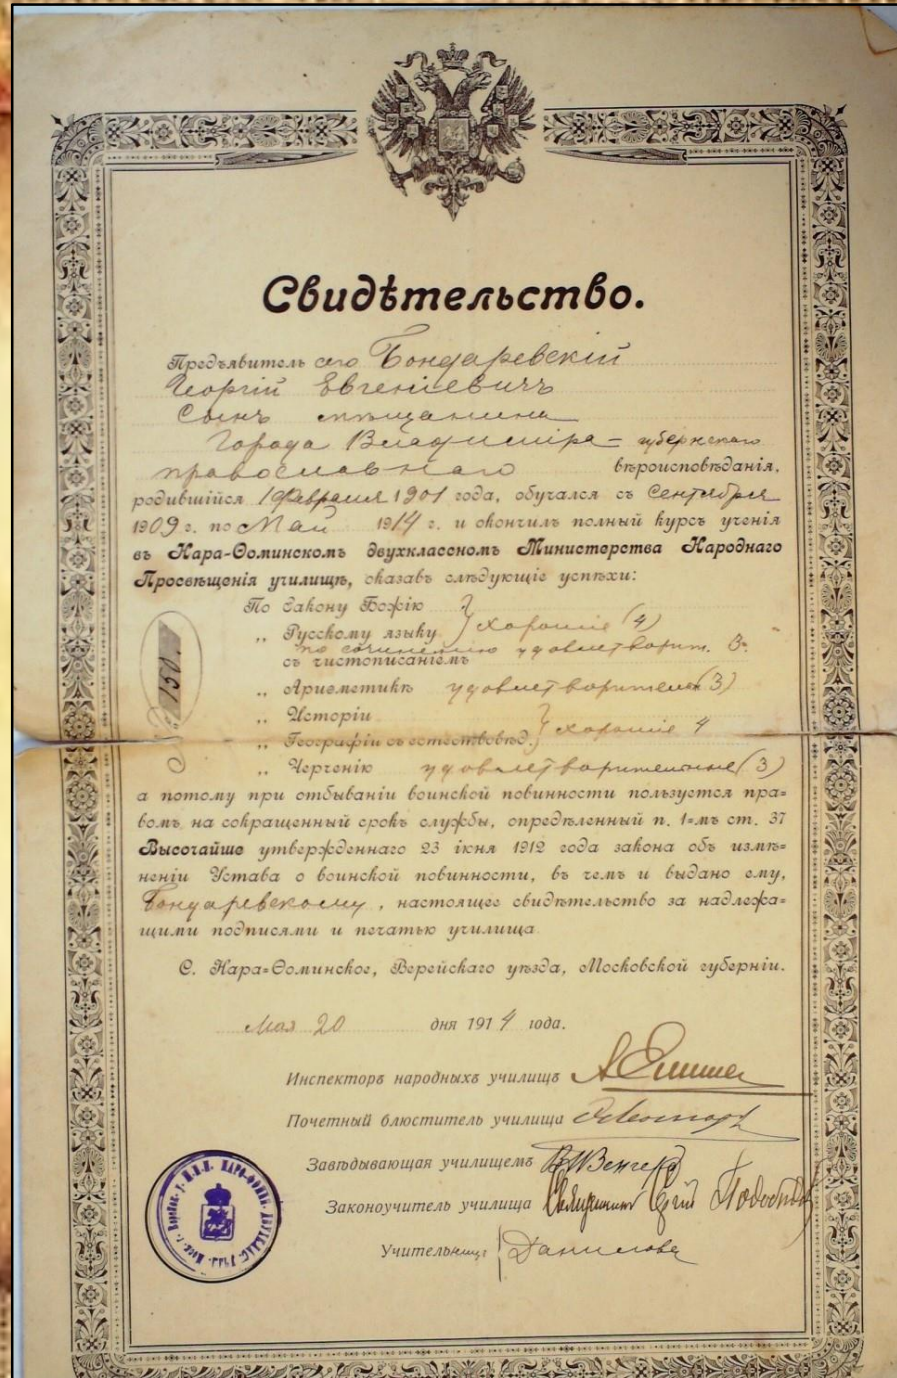 Свидѣтельство.
Предъявитель сего Бондаревскій
Георгій Евгеніевичъ
Сынъ мѣщанина
Города Владиміра - губернскаго
православнаго вѣроисповѣданія,
родившійся 1 Февраля 1901 года, обучался съ Сентября
1909 г. по Май 1914 г. и окончилъ полный курсъ ученія
въ Нара-Ѳоминскомъ двухклассномъ Министерства Народнаго
Просвѣщенія училищѣ, оказавъ слѣдующіе успѣхи:
По Закону Божію
„ Русскому языку } хорошіе (4)
по сочиненію удовлетворит. 3.
съ чистописаніемъ
„ Ариѳметикѣ удовлетворительн (3)
„ Исторіи
„ Географіи съ естествовѣд. } хорошіе 4
„ Черченію удовлетворительные (3)
№ 150.
а потому при отбываніи воинской повинности пользуется пра=
вомъ на сокращенный срокъ службы, опредѣленный п. 1=мъ ст. 37
Высочайше утвержденнаго 23 іюня 1912 года закона объ измѣ=
неніи Устава о воинской повинности, въ чемъ и выдано ему,
Бондаревскому, настоящее свидѣтельство за надлежа=
щими подписями и печатью училища
С. Нара=Ѳоминское, Верейскаго уѣзда, Московской губерніи.
Мая 20 дня 1914 года.
Инспекторъ народныхъ училищъ
Почетный блюститель училища
Завѣдывающая училищемъ
Законоучитель училища Священникъ Сергій
Учительница Данилова